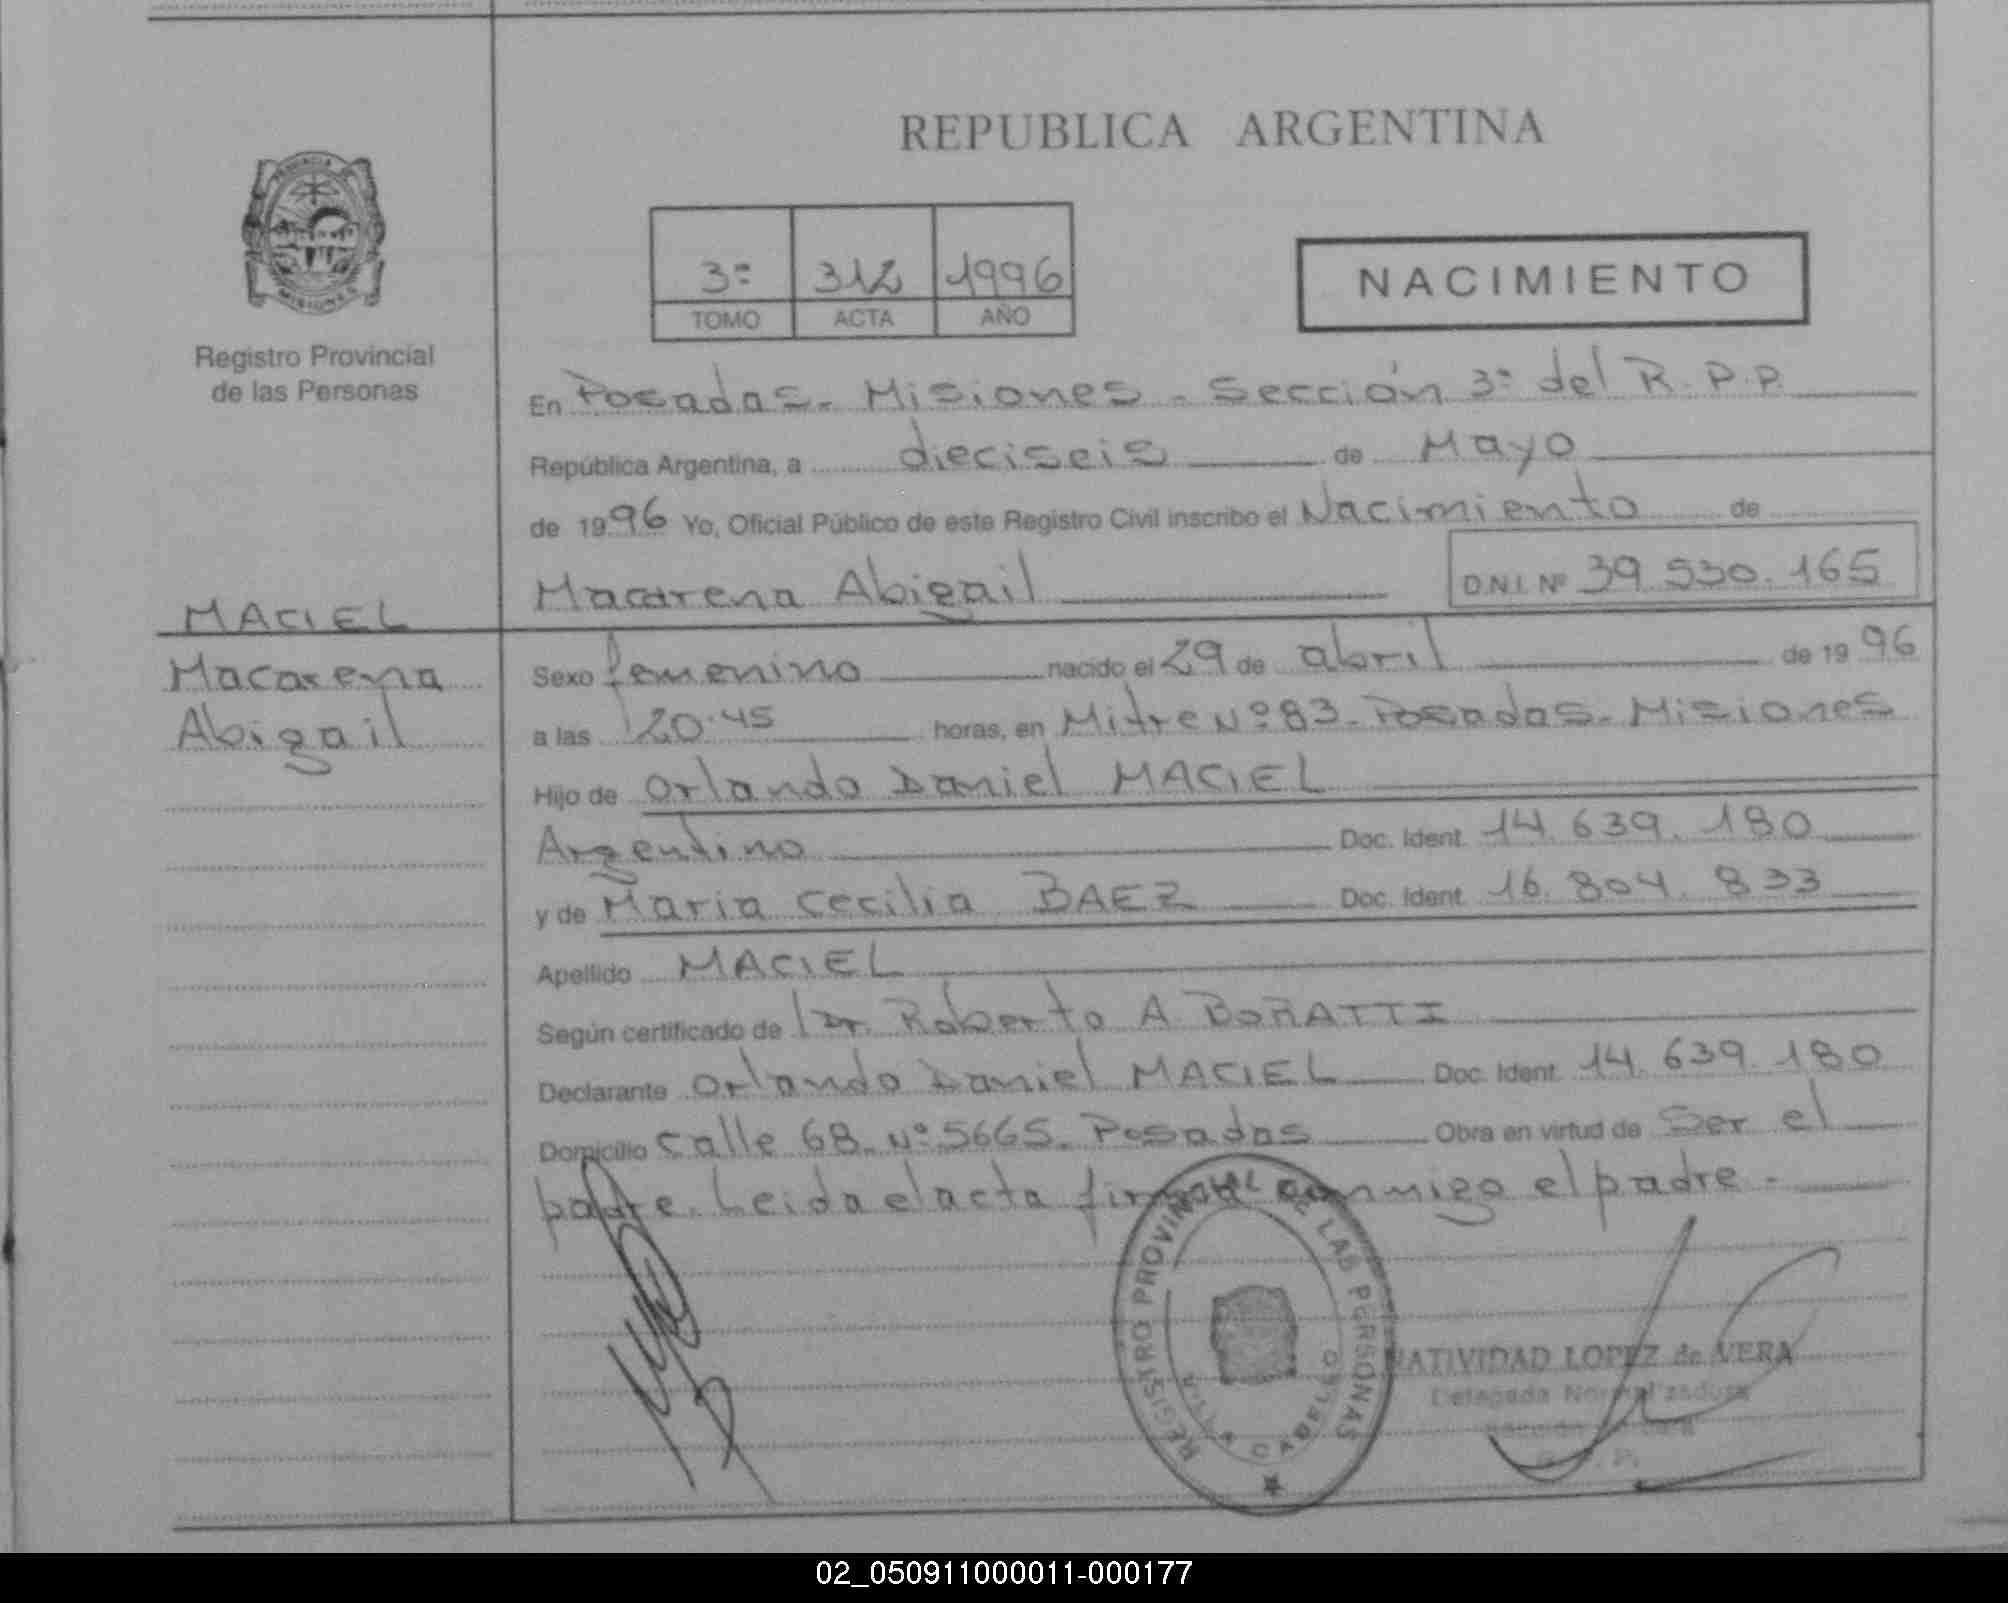 REPUBLICA ARGENTINA
PROVINCIA
MISIONES
Registro Provincial
de las Personas
3º 312 1996
TOMO ACTA AÑO
NACIMIENTO
En Posadas. Misiones. Sección 3º del R.P.P.
República Argentina, a dieciseis de Mayo
de 1996 Yo, Oficial Público de este Registro Civil inscribo el Nacimiento de
Macarena Abigail D.N.I. Nº 39.530.165
MACIEL
Macarena
Abigail
Sexo femenino nacido el 29 de abril de 1996
a las 20.45 horas, en Mitre Nº 83. Posadas. Misiones
Hijo de Orlando Daniel MACIEL
Argentino Doc. Ident. 14.639.180
y de Maria Cecilia BAEZ Doc. Ident. 16.804.833
Apellido MACIEL
Según certificado de Dr. Roberto A. BORATTI
Declarante Orlando Daniel MACIEL Doc. Ident. 14.639.180
Domicilio Calle 68. Nº 5665. Posadas Obra en virtud de Ser el
padre. Leida el acta firma conmigo el padre.
REGISTRO PROVINCIAL DE LAS PERSONAS
VILLA CABELLO
NATIVIDAD LOPEZ de VERA
Delegada Normalizadora
02_050911000011-000177